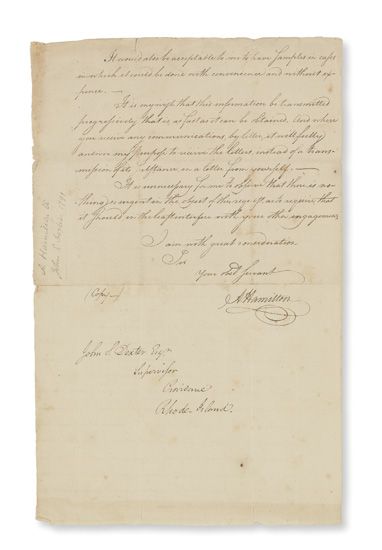 It would also be acceptable to me to have Samples in cases
in which it could be done with convenience and without ex-
pence.
It is my wish that this information be transmitted
progressively, that is as fast as it can be obtained. And where
you receive any communications, by letter, it will fully
answer my purpose to receive the letters, instead of a trans-
mission of its substance in a letter from yourself.
It is unnecessary for me to observe that there is no-
thing so urgent in the object of this as to require, that
it should in the least interfere with your other engagements
I am with great consideration
Sir
Your Obedt Servant
(Copy)
A Hamilton
John S Dexter Esqr
Supervisor
Providence
Rhode-Island.
A Hamilton
John S. Dexter 1791